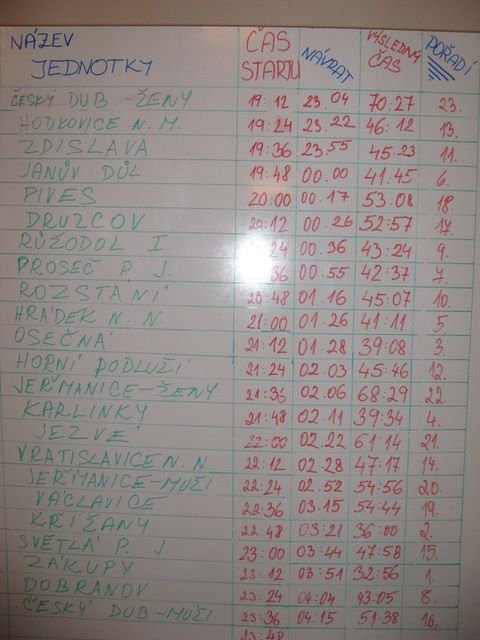 NÁZEV JEDNOTKY ČAS STARTU NÁVRAT VÝSLEDNÝ ČAS POŘADÍ
ČESKÝ DUB - ŽENY 19:12 23.04 70:27 23.
HODKOVICE N. M. 19:24 23.22 46:12 13.
ZDISLAVA 19:36 23.55 45.23 11.
JANŮV DŮL 19:48 00.00 41:45 6.
PIVES 20:00 00.17 53:08 18.
DRUZCOV 20:12 00.26 52:57 17.
RŮŽODOL I. 24 00.36 43:24 9.
PROSEČ P. J. 36 00.55 42:37 7.
ROZSTÁNÍ 20:48 01.16 45:07 10.
HRÁDEK N. N. 21:00 01.26 41:11 5.
OSEČNÁ 21:12 01.28 39:08 3.
HORNÍ PODLUŽÍ 21:24 02.03 45:46 12.
JEŘMANICE-ŽENY 21:36 02.06 68:29 22.
KARLINKY 21:48 02.11 39:34 4.
JEZVÉ 22:00 02.22 61:14 21.
VRATISLAVICE N. N 22:12 02.28 47:17 14.
JEŘMANICE-MUŽI 22:24 02.52 54:56 20.
VÁCLAVICE 22:36 03.15 54:44 19.
KŘIŽANY 22:48 03:21 36:00 2.
SVĚTLÁ P. J. 23:00 03:44 47:58 15.
ZÁKUPY 23:12 03:51 32:56 1.
DOBRANOV 23:24 04:04 43:05 8.
ČESKÝ DUB-MUŽI 23:36 04:15 51:38 16.
23:48